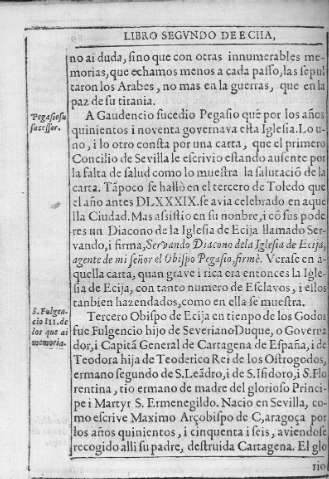 LIBRO SEGVNDO DE ECIIA,
no ai duda, sino que con otras innumerables me-
morias, que echamos menos a cada passo, las sepul
taron los Arabes, no mas en la guerras, que en la
paz de su tirania.
Pegasio su
sucessor.
A Gaudencio sucedio Pegasio que por los años
quinientos i noventa governava esta Iglesia. Lo u-
no, i lo otro consta por una carta, que el primero
Concilio de Sevilla le escrivio estando ausente por
la falta de salud como lo muestra la salutaciō de la
carta. Tāpoco se hallò en el tercero de Toledo que
el año antes DLXXXIX. se avia celebrado en aque
lla Ciudad. Mas assistio en su nonbre, i cō sus pode
res un Diacono de la Iglesia de Ecija llamado Ser-
vando, i firma, Servando Diacono dela Iglesia de Ecija,
agente de mi señor el Obispo Pegasio, firmè. Verase en a-
quella carta, quan grave i rica era entonces la Igle-
sia de Ecija, con tanto numero de Esclavos, i ellos
tanbien hazendados, como en ella se muestra.
S. Fulgen-
cio III. de
los que ai
memoria.
Tercero Obispo de Ecija en tienpo de los Godos
fue Fulgencio hijo de Severiano Duque, o Governa
dor, i Capitā General de Cartagena de España, i de
Teodora hija de Teoderico Rei de los Ostrogodos,
ermano segundo de S. Leādro, i de S. Isidoro, i S. Flo
rentina, tio ermano de madre del glorioso Princi-
pe i Martyr S. Ermenegildo. Nacio en Sevilla, co-
mo escrive Maximo Arçobispo de Çaragoça por
los años quinientos, i cinquenta i seis, aviendose
recogido alli su padre, destruida Cartagena. El glo